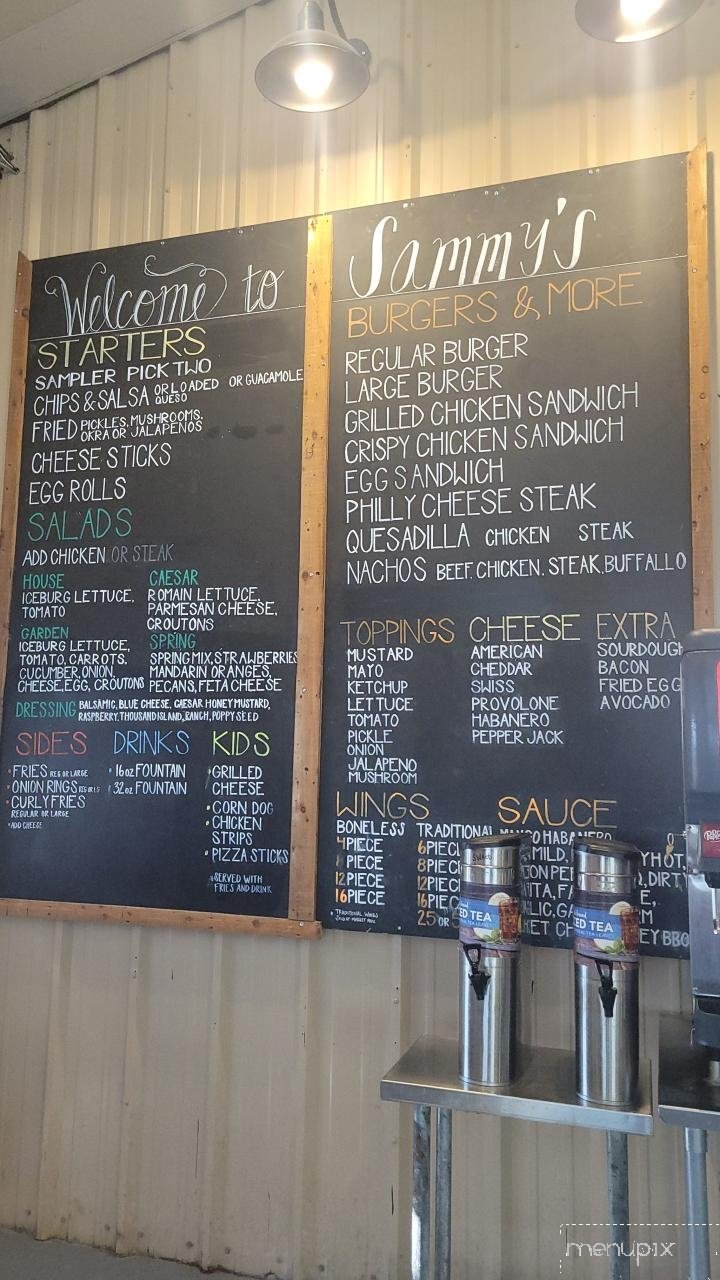 Welcome to
STARTERS
SAMPLER PICK TWO
CHIPS & SALSA OR LOADED OR GUACAMOLE
QUESO
FRIED PICKLES, MUSHROOMS,
OKRA OR JALAPENOS
CHEESE STICKS
EGG ROLLS
SALADS
ADD CHICKEN OR STEAK
HOUSE
ICEBURG LETTUCE,
TOMATO
CAESAR
ROMAIN LETTUCE,
PARMESAN CHEESE,
CROUTONS
GARDEN
ICEBURG LETTUCE,
TOMATO, CARROTS,
CUCUMBER, ONION,
CHEESE, EGG, CROUTONS
SPRING
SPRING MIX, STRAWBERRIES
MANDARIN ORANGES,
PECANS, FETA CHEESE
DRESSING BALSAMIC, BLUE CHEESE, CAESAR, HONEY MUSTARD,
RASPBERRY, THOUSAND ISLAND, RANCH, POPPY SEED
SIDES
• FRIES REG OR LARGE
• ONION RINGS REG OR LG
• CURLY FRIES
REGULAR OR LARGE
• ADD CHEESE
DRINKS
• 16oz FOUNTAIN
• 32oz FOUNTAIN
KIDS
• GRILLED
CHEESE
• CORN DOG
• CHICKEN
STRIPS
• PIZZA STICKS
• SERVED WITH
FRIES AND DRINK
Sammy's
BURGERS & MORE
REGULAR BURGER
LARGE BURGER
GRILLED CHICKEN SANDWICH
CRISPY CHICKEN SANDWICH
EGG SANDWICH
PHILLY CHEESE STEAK
QUESADILLA CHICKEN STEAK
NACHOS BEEF, CHICKEN, STEAK, BUFFALLO
TOPPINGS
MUSTARD
MAYO
KETCHUP
LETTUCE
TOMATO
PICKLE
ONION
JALAPENO
MUSHROOM
CHEESE
AMERICAN
CHEDDAR
SWISS
PROVOLONE
HABANERO
PEPPER JACK
EXTRA
SOURDOUGH
BACON
FRIED EGG
AVOCADO
WINGS
BONELESS
4 PIECE
PIECE
12 PIECE
16 PIECE
TRADITIONAL
6 PIEC
8 PIEC
12 PIEC
16 PIEC
25 OR
TRADITIONAL WINGS
SAUCE
HABANERO
MILD,
HOT,
DIRTY
BBQ
ICED TEA
ICED TEA
menupix